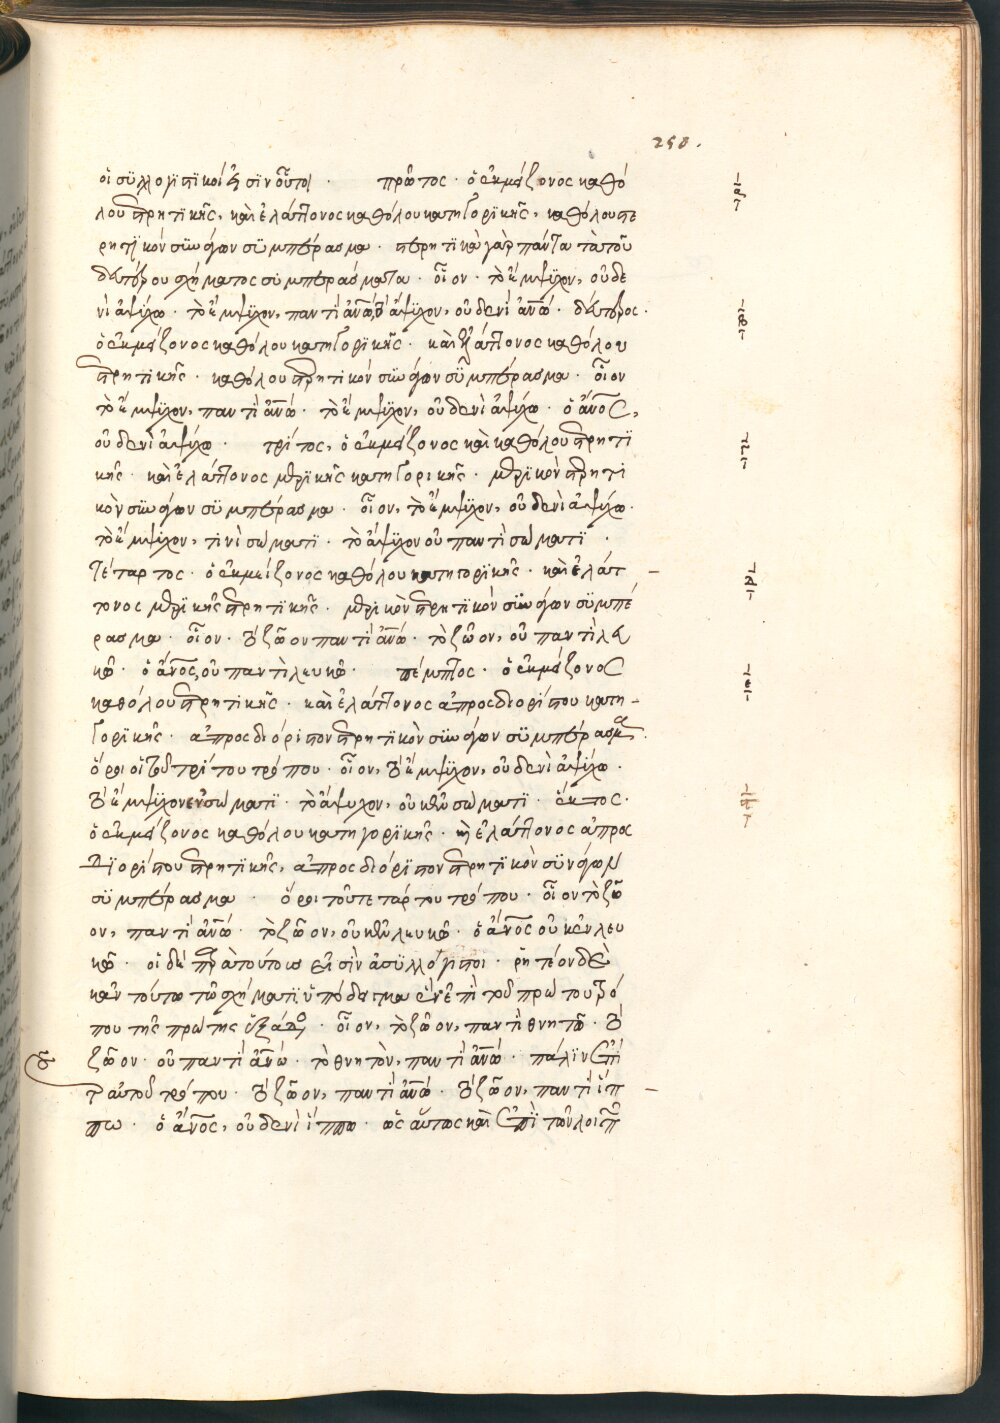 258.
οἱ συλλογιστικοί εἰσιν οὗτοι · πρῶτος · ὁ ἐκ μείζονος καθό
λου στερητικῆς, καὶ ἐλάττονος καθόλου κατηγορικῆς, καθόλου στε
ρητικὸν συνάγων συμπέρασμα · στερητικὰ γὰρ πάντα τὰ τοῦ
δευτέρου σχήματος συμπεράσματα · οἷον · τὸ ἔμψυχον, οὐδε
νὶ ἀψύχῳ · τὸ ἔμψυχον, παντὶ ἀνῶ, τὸ ἄψυχον, οὐδενὶ ἀνῶ · δεύτερος ·
ὁ ἐκ μείζονος καθόλου κατηγορικῆς · καὶ ἐλάττονος καθόλου
στερητικῆς · καθόλου στερητικόν συνάγων συμπέρασμα · οἷον
τὸ ἔμψυχον, παντὶ ἀνῶ · τὸ ἔμψυχον, οὐδενὶ ἀψύχῳ · ὁ ἀνος,
οὐδενὶ ἀψύχῳ · τρίτος, ὁ ἐκ μείζονος καὶ καθόλου στερητι
κῆς · καὶ ἐλάττονος μερικῆς κατηγορικῆς · μερικὸν στερητι
κὸν συνάγων συμπέρασμα · οἷον, τὸ ἔμψυχον, οὐδενὶ ἀψύχῳ ·
τὸ ἔμψυχον, τινὶ σώματι · τὸ ἄψυχον οὐ παντὶ σώματι ·
Τέταρτος · ὁ ἐκ μείζονος καθόλου κατηγορικῆς · καὶ ἐλάτ
τονος μερικῆς στερητικῆς · μερικὸν στερητικὸν συνάγων συμπέ
ρασμα · οἷον · τὸ ζῶον παντὶ ἀνῶ · τὸ ζῶον, οὐ παντὶ λευ
κῶ · ὁ ἀνος, οὐ παντὶ λευκῶ · πέμπτος · ὁ ἐκ μείζονος
καθόλου στερητικῆς · καὶ ἐλάττονος ἀπροσδιορίστου κατη
γορικῆς · ἀπροσδιόριστον στερητικὸν συνάγων συμπέρασμα ·
ὅροι οἱ τοῦ τρίτου τρόπου · οἷον, τὸ ἔμψυχον, οὐδενὶ ἀψύχῳ ·
τὸ ἔμψυχον ἐν σώματι · τὸ ἄψυχον, οὐκ ἐν σώματι · ἕκτος ·
ὁ ἐκ μείζονος καθόλου κατηγορικῆς · καὶ ἐλάττονος ἀπροσ
διορίστου στερητικῆς, ἀπροσδιόριστον στερητικὸν συνάγων
συμπέρασμα · ὅροι τοῦ τετάρτου τρόπου · οἷον τὸ ζῶ
ον, παντὶ ἀνῶ · τὸ ζῶον, οὐκ ἐν λευκῶ · ὁ ἀνος οὐκ ἐν λευ
κῶ · οἱ δὲ παρὰ τούτοις εἰσὶν ἀσυλλόγιστοι · ῥητέον δὲ
κἀν τούτῳ τῶ σχήματι ὑπόδειγμα ἑνὸς ἐπὶ τοῦ πρώτου τρό
που τῆς πρώτης · οἷον, τὸ ζῶον, παντὶ θνητῶ · τὸ
ζῶον · οὐ παντὶ ἀνῶ · τὸ θνητὸν, παντὶ ἀνῶ · πάλιν ἐπὶ
τοῦ αὐτοῦ τρόπου · τὸ ζῶον, παντὶ ἀνῶ · τὸ ζῶον, παντὶ ἵπ
πω · ὁ ἀνος, οὐδενὶ ἵππω · ὡσαύτως καὶ ἐπὶ τῶν λοιπῶν